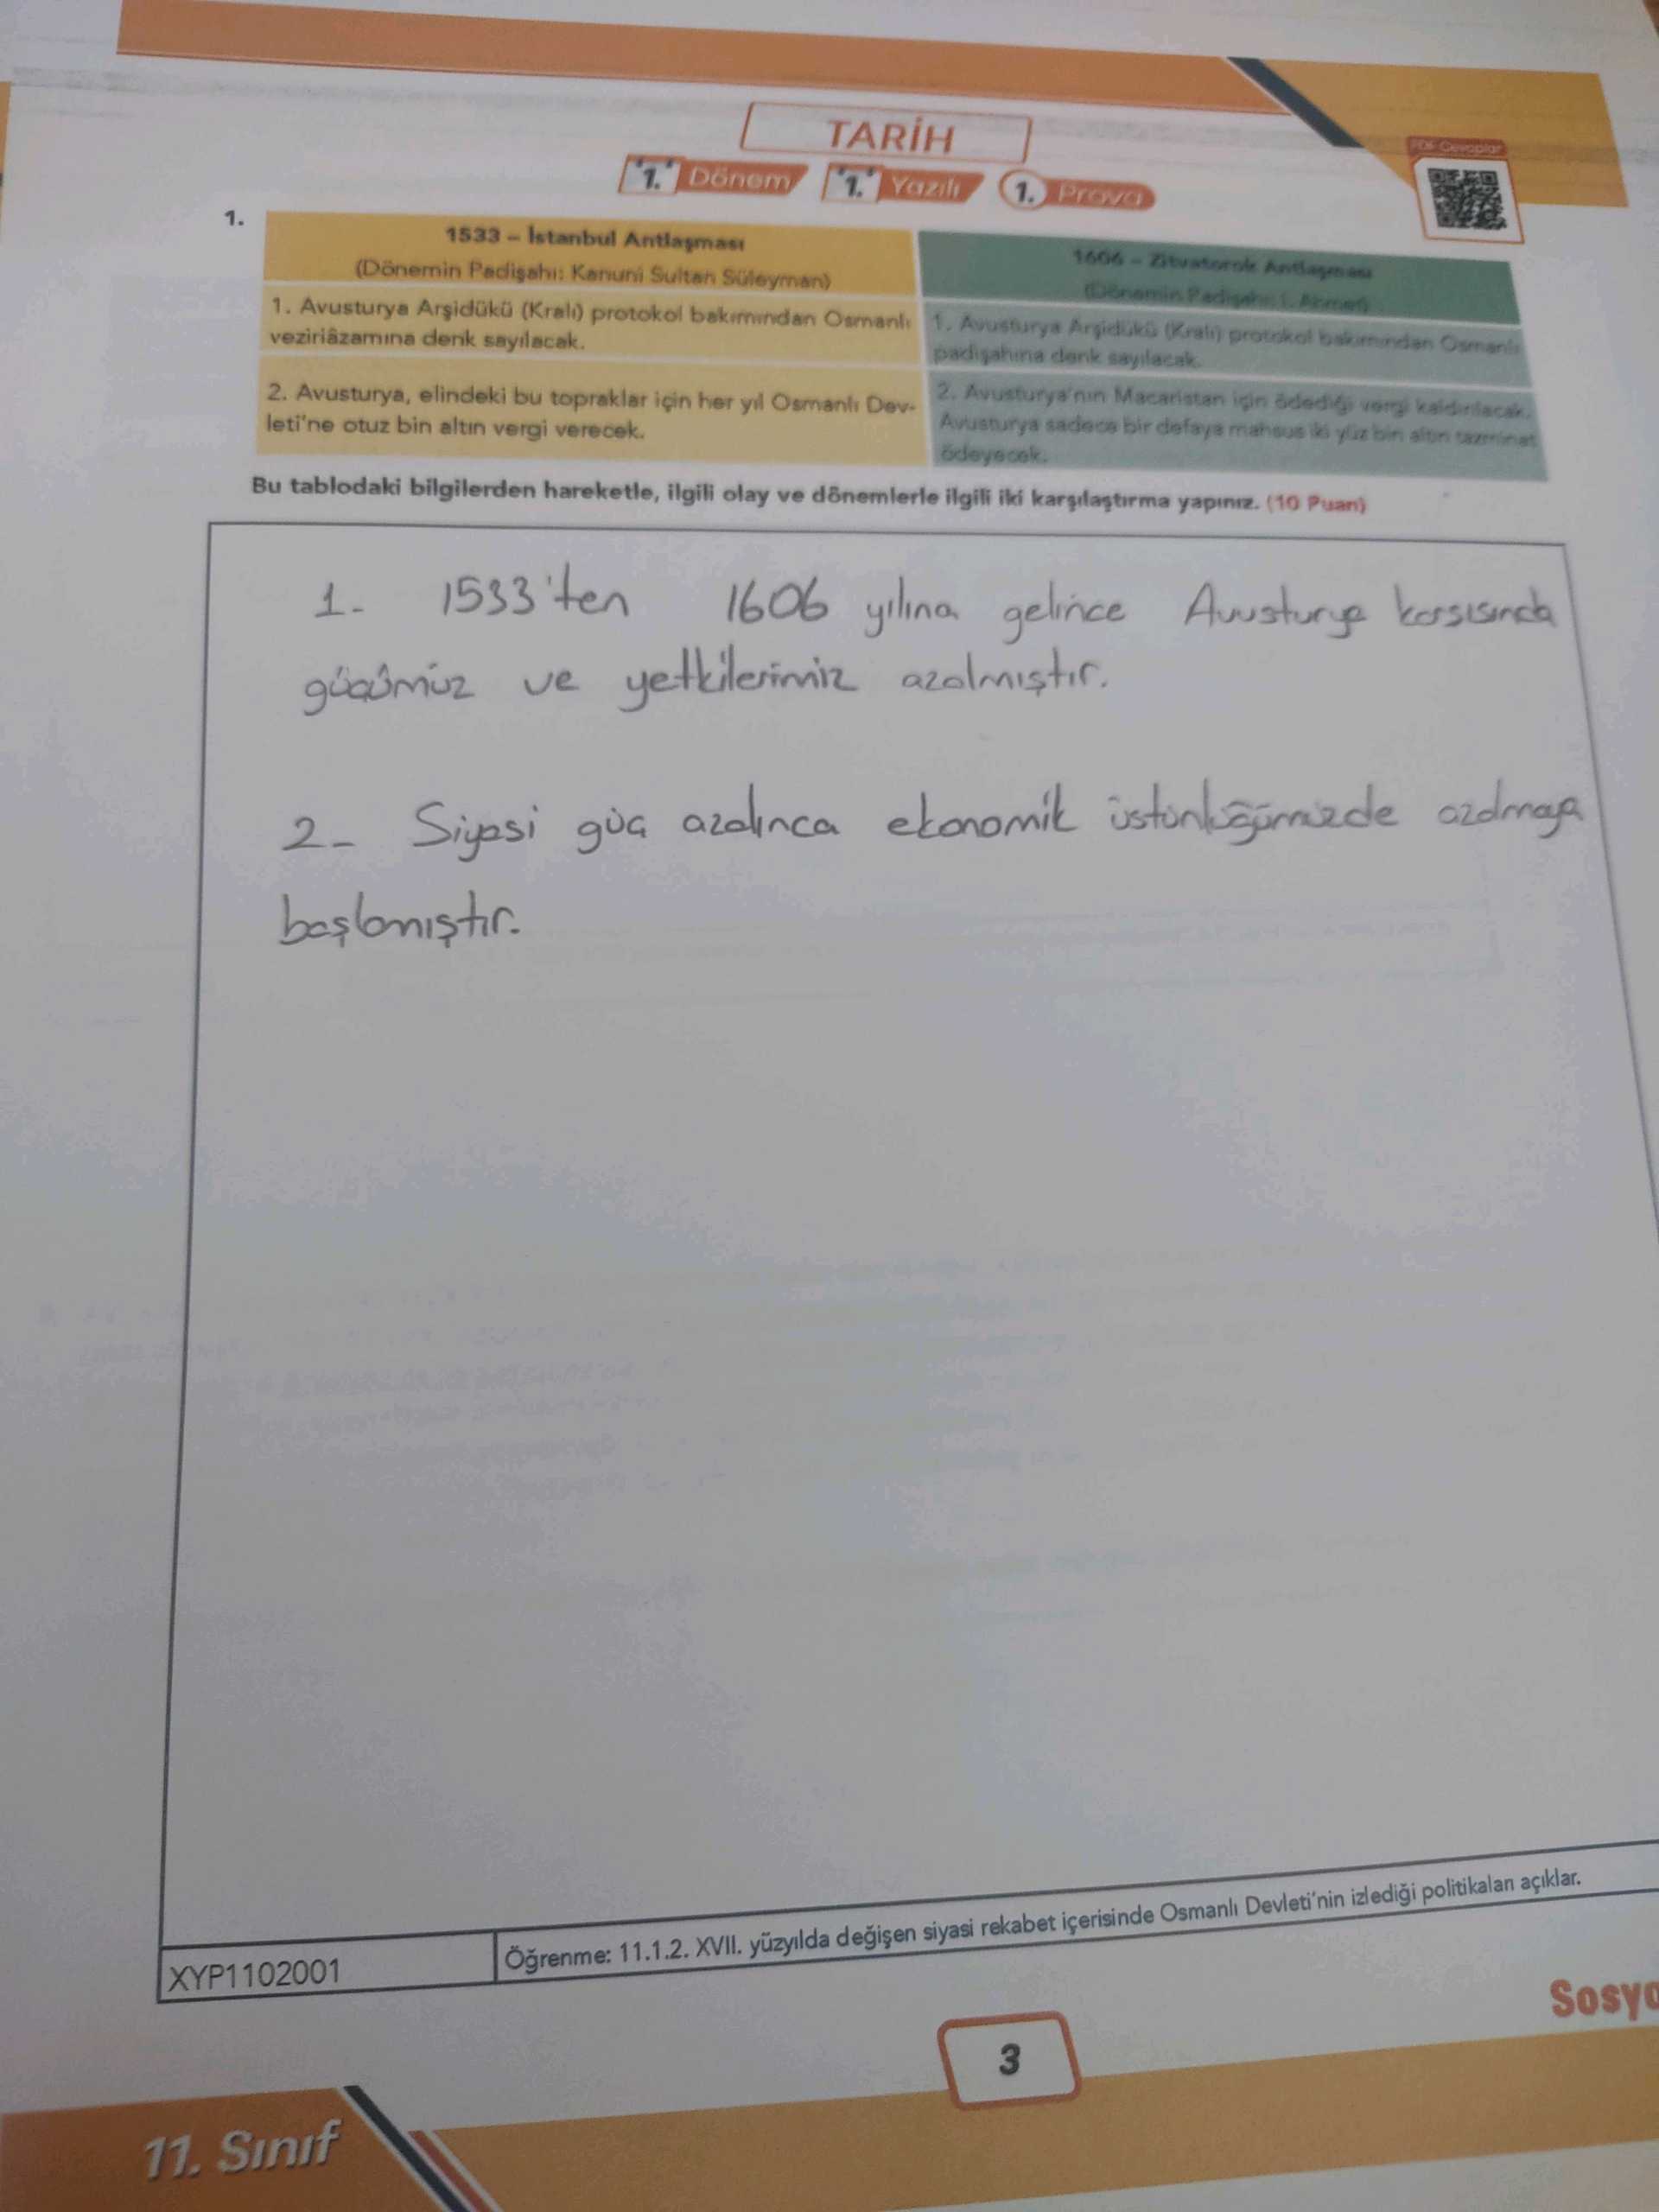 TARİH
1. Dönem 1. Yazılı 1. Prova
PDF Cevaplar
1.
1533 – İstanbul Antlaşması
(Dönemin Padişahı: Kanuni Sultan Süleyman)
1. Avusturya Arşidükü (Kralı) protokol bakımından Osmanlı
veziriâzamına denk sayılacak.
2. Avusturya, elindeki bu topraklar için her yıl Osmanlı Dev-
leti'ne otuz bin altın vergi verecek.
1606 – Zitvatorok Antlaşması
(Dönemin Padişahı: I. Ahmet)
1. Avusturya Arşidükü (Kralı) protokol bakımından Osmanlı
padişahına denk sayılacak.
2. Avusturya'nın Macaristan için ödediği vergi kaldırılacak,
Avusturya sadece bir defaya mahsus iki yüz bin altın tazminat
ödeyecek.
Bu tablodaki bilgilerden hareketle, ilgili olay ve dönemlerle ilgili iki karşılaştırma yapınız. (10 Puan)
1- 1533'ten 1606 yılına gelince Avusturya karşısında
gücümüz ve yetkilerimiz azalmıştır.
2- Siyasi güç azalınca ekonomik üstünlüğümüzde azalmaya
başlamıştır.
XYP1102001
Öğrenme: 11.1.2. XVII. yüzyılda değişen siyasi rekabet içerisinde Osmanlı Devleti'nin izlediği politikaları açıklar.
Sosya
3
11. Sınıf